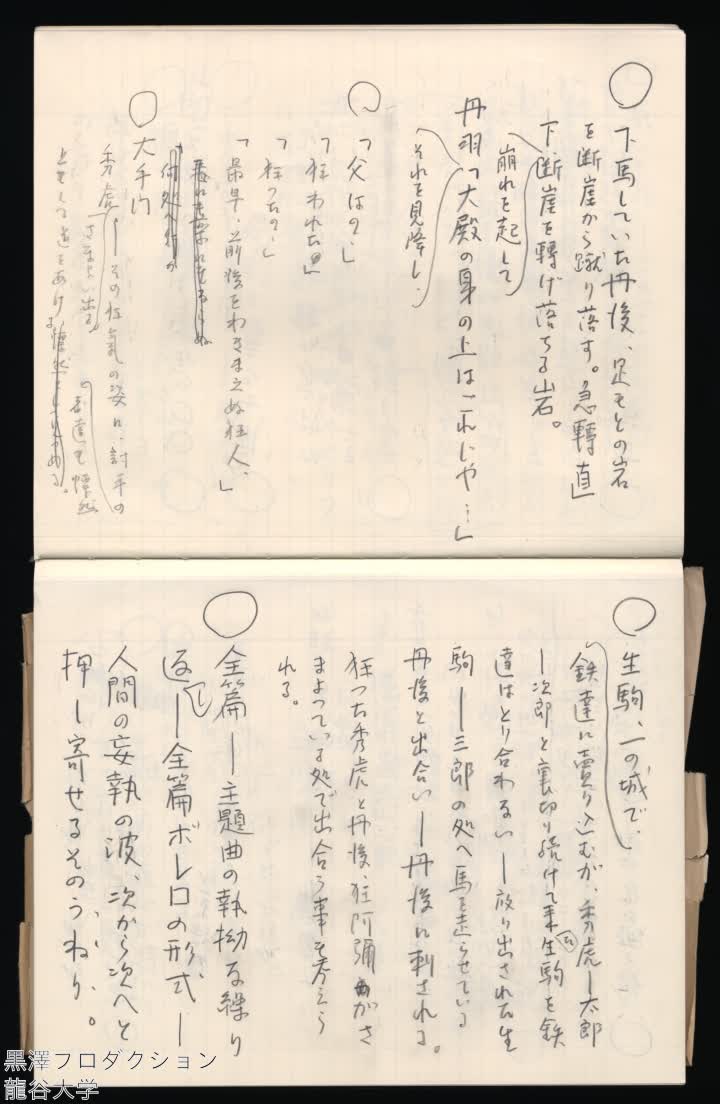 下馬していた丹後、足もとの岩
を断崖から蹴り落す。急轉直
下、断崖を轉げ落ちる岩。
崩れを起して
丹羽「大殿の身の上はこれじや…」
それを見降し、
「父は？」
「狂われた！」
「狂った？」
「最早、前後をわきまえぬ狂人、」
何処へ行か
大手門
秀虎ーその狂気の姿に、討手の
さまよい出る。
者達も慄然
として道をあける。
生駒、一の城で、
鉄達に売り込むが、秀虎ー太郎
ー次郎と裏切り続けて来た生駒を鉄
達はとり合わない ー放り出された生
駒ー三郎の処へ馬を走らせている
丹後と出合いー丹後に刺される。
狂った秀虎と丹後、狂阿彌がさ
まよっている処で出合う事も考えら
れる。
全篇ー主題曲の執拗な繰り
返しー全篇ボレロの形式ー
人間の妄執の波、次から次へと
押し寄せるそのうねり。
黒澤プロダクション
龍谷大学